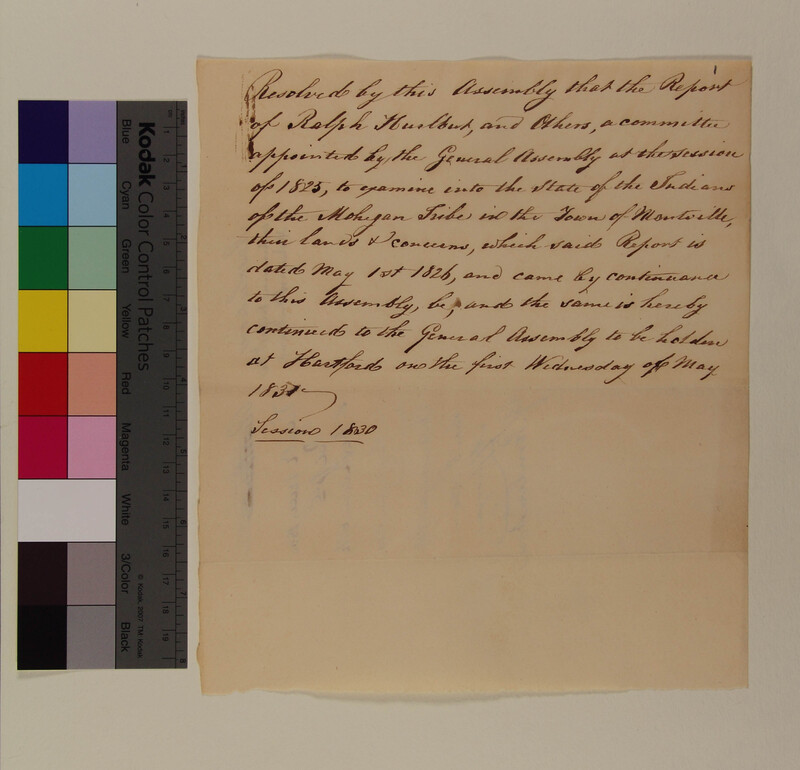 Resolved by this Assembly that the Report
of Ralph Hurlbut, and Others, a committee
appointed by the General Assembly at the session
of 1825, to examine into the State of the Indians
of the Mohegan Tribe in the Town of Montville,
their lands & concerns, which said Report is
dated May 1st 1826, and came by continuance
to this Assembly, be, and the same is hereby
continued to the General Assembly to be holden
at Hartford on the first Wednesday of May
1831
Session 1830
Kodak Color Control Patches
Blue
Cyan
Green
Yellow
Red
Magenta
White
3/Color
Black
© Kodak, 2007 TM Kodak
1 2 3 4 5 6 7 8 9 10 11 12 13 14 15 16 17 18 19